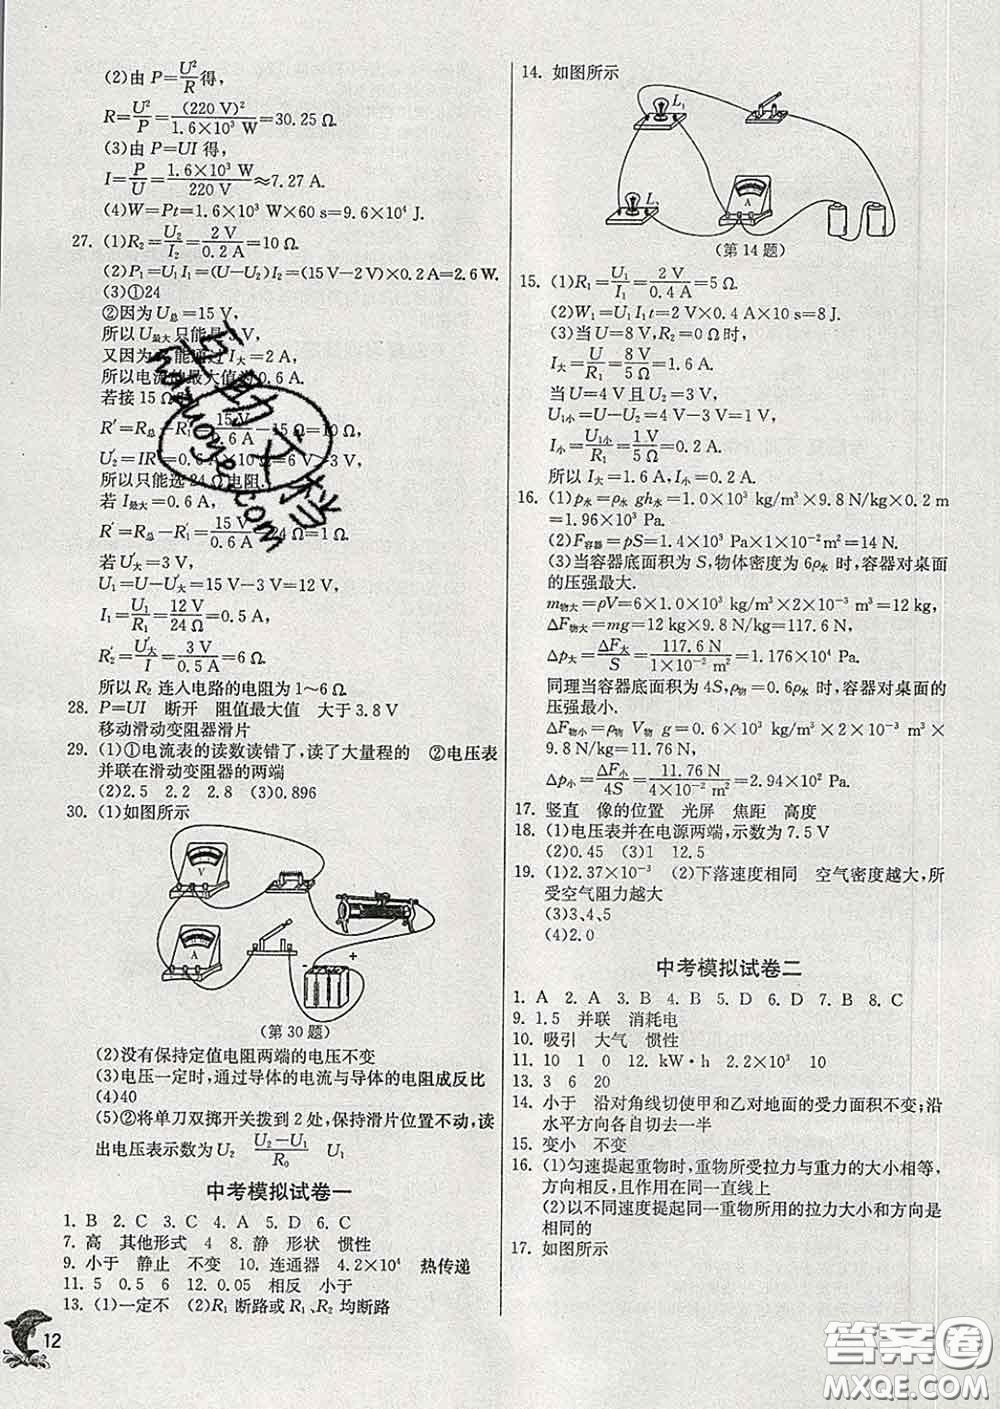 (2)由 P=U²/R得,
R=U²/P=(220 V)²/1.6×10³ W=30.25 Ω.
(3)由 P=UI 得,
I=P/U=1.6×10³ W/220 V≈7.27 A.
(4)W=Pt=1.6×10³ W×60 s=9.6×10⁴ J.
27. (1)R₂=U₂/I₂=2 V/0.2 A=10 Ω.
(2)P₁=U₁I₁=(U-U₂)I₂=(15 V-2 V)×0.2 A=2.6 W.
(3)①24
②因为U总=15 V,
所以U最大只能是3 V,
又因为 能通过 I大=2 A,
所以电流的最大值为0.6 A.
若接 15 Ω
R′=R总-R₁=15 V/0.6 A-15 Ω=10 Ω,
U₂′=IR=0.6 A×10 Ω=6 V>3 V,
所以只能选 24 Ω 电阻.
若 I最大=0.6 A,
R′=R总-R₁=15 V/0.6 A-24 Ω=1 Ω.
若U大′=3 V,
U₁=U-U大′=15 V-3 V=12 V,
I₁=U₁/R₁=12 V/24 Ω=0.5 A,
R₂′=U大′/I=3 V/0.5 A=6 Ω.
所以 R₂ 连入电路的电阻为 1~6 Ω.
28. P=UI 断开 阻值最大值 大于3.8 V
移动滑动变阻器滑片
29. (1)①电流表的读数读错了,读了大量程的 ②电压表
并联在滑动变阻器的两端
(2)2.5 2.2 2.8 (3)0.896
30. (1)如图所示
V
A
+
-
(第 30 题)
(2)没有保持定值电阻两端的电压不变
(3)电压一定时,通过导体的电流与导体的电阻成反比
(4)40
(5)②将单刀双掷开关拨到 2 处,保持滑片位置不动,读
出电压表示数为U₂ (U₂-U₁)/R₀ U₁
中考模拟试卷一
1. B 2. C 3. C 4. A 5. D 6. C
7. 高 其他形式 4 8. 静 形状 惯性
9. 小于 静止 不变 10. 连通器 4.2×10⁴ 热传递
11. 5 0.5 6 12. 0.05 相反 小于
13. (1)一定不 (2)R₁ 断路或 R₁、R₂ 均断路
12
14. 如图所示
L₁
L₂
A
(第 14 题)
15. (1)R₁=U₁/I₁=2 V/0.4 A=5 Ω.
(2)W₁=U₁I₁t=2 V×0.4 A×10 s=8 J.
(3)当U=8 V,R₂=0 Ω时,
I大=U/R₁=8 V/5 Ω=1.6 A.
当U=4 V 且 U₂=3 V,
U₁小=U-U₂=4 V-3 V=1 V,
I小=U₁小/R₁=1 V/5 Ω=0.2 A.
所以 I大=1.6 A,I小=0.2 A.
16. (1)p水=ρ水 gh水=1.0×10³ kg/m³×9.8 N/kg×0.2 m
=1.96×10³ Pa.
(2)F容器=pS=1.4×10³ Pa×1×10⁻² m²=14 N.
(3)当容器底面积为 S,物体密度为 6ρ水 时,容器对桌面
的压强最大.
m物大=ρV=6×1.0×10³ kg/m³×2×10⁻³ m³=12 kg,
ΔF物大=mg=12 kg×9.8 N/kg=117.6 N,
Δp大=ΔF大/S=117.6 N/1×10⁻² m²=1.176×10⁴ Pa.
同理当容器底面积为 4S,ρ物=0.6ρ水时,容器对桌面的
压强最小.
ΔF物小=ρ物 V物 g=0.6×10³ kg/m³×2×10⁻³ m³
×9.8 N/kg=11.76 N,
Δp小=ΔF小/4S=11.76 N/4×10⁻² m²=2.94×10² Pa.
17. 竖直 像的位置 光屏 焦距 高度
18. (1)电压表并在电源两端,示数为 7.5 V
(2)0.45 (3)1 12.5
19. (1)2.37×10⁻³ (2)下落速度相同 空气密度越大,所
受空气阻力越大
(3)3、4、5
(4)2.0
中考模拟试卷二
1. A 2. A 3. B 4. B 5. D 6. D 7. B 8. C
9. 1.5 并联 消耗电
10. 吸引 大气 惯性
11. 10 1 0 12. kW·h 2.2×10³ 10
13. 3 6 20
14. 小于 沿对角线切使甲和乙对地面的受力面积不变;沿
水平方向各自切去一半
15. 变小 不变
16. (1)匀速提起重物时,重物所受拉力与重力的大小相等,
方向相反,且作用在同一直线上
(2)以不同速度提起同一重物所用的拉力大小和方向是
相同的
17. 如图所示
答案圈
MXQE.COM